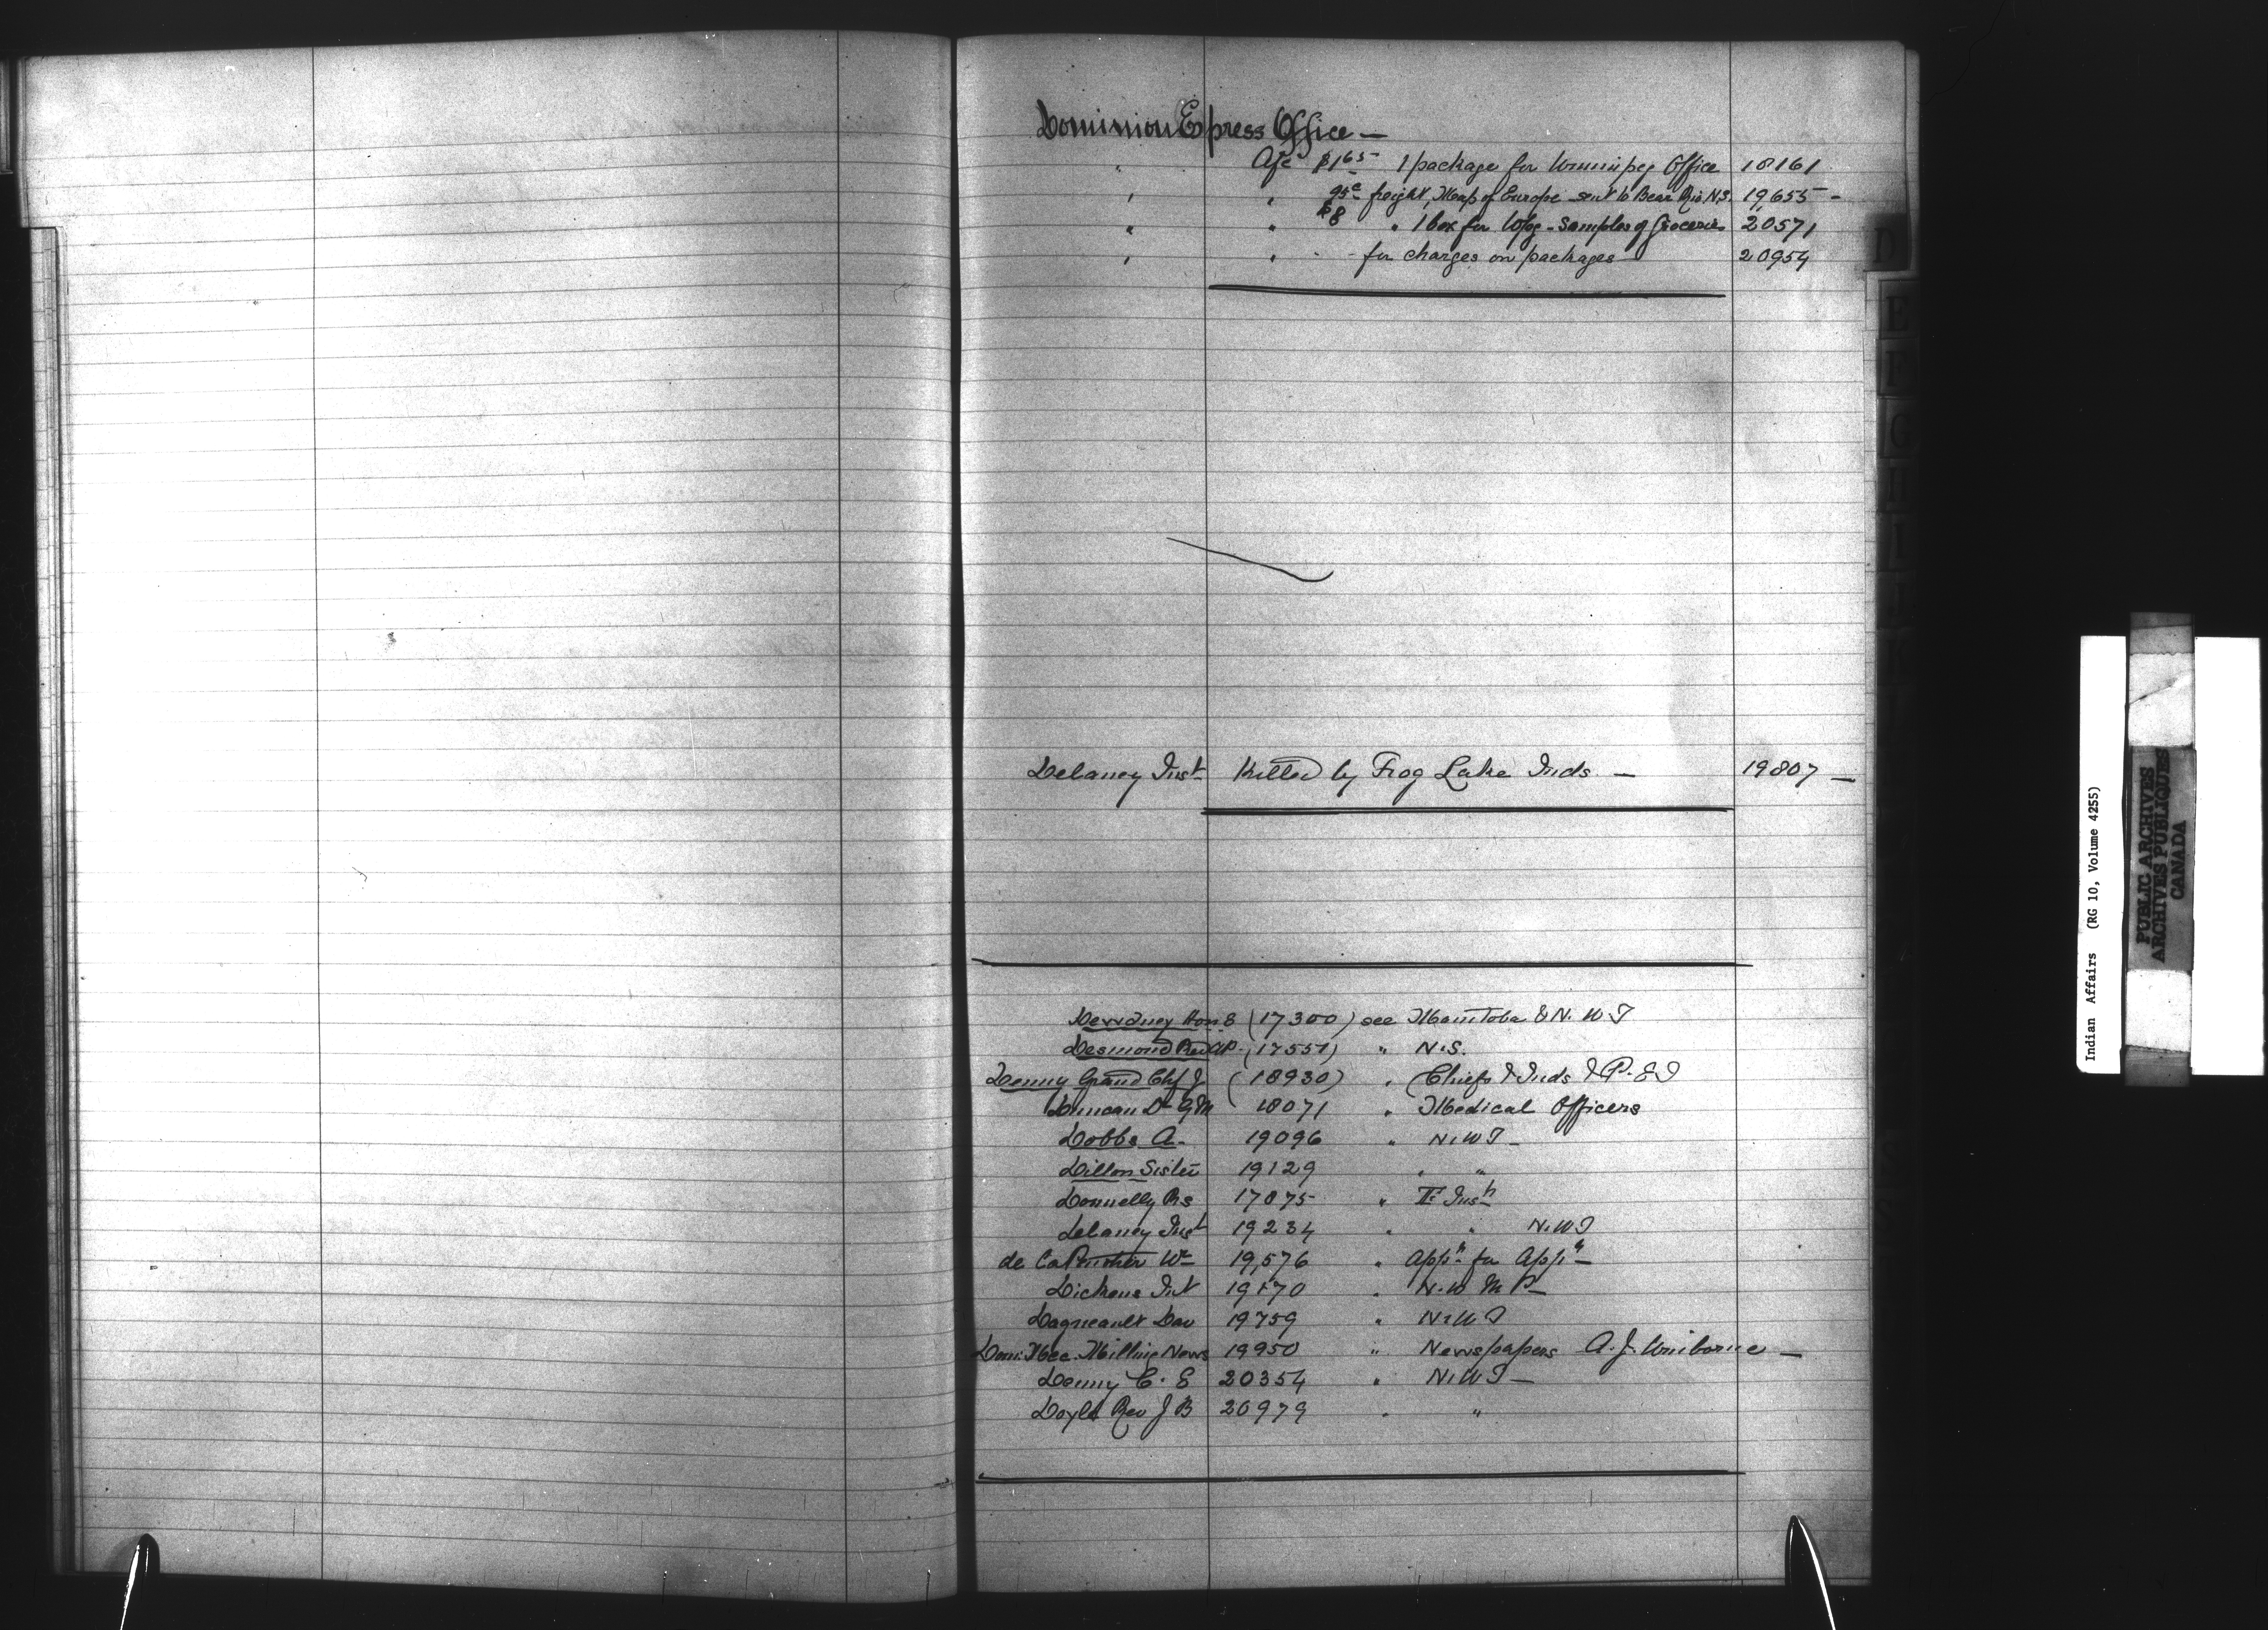 Dominion Express Office —
" A/c $1.65 1 package for Winnipeg Office 18161
" " 95c freight, Map of Europe sent to Bear Riv. N.S. 19655 -
" " $8 " 1 box for Wpg - Samples of Groceries 20571
" " - - for charges on packages 20954
Delaney Inst Killed by Frog Lake Inds — 19807 —
Dewdney Hon E (17300) see Manitoba & N.W.T
Desmond Rev A.P. (17551) " N.S.
Denny Grand Chf J (18930) " Chiefs & Inds & P.E.I
Duncan Dr G M 18071 " Medical Officers
Dobbs A. 19096 " N.W.T —
Dillon Sister 19129 " "
Donnelly Bs 17875 "
Delaney Inst 19234 " " N.W.T
de Ca Wm 19,576 " Appn for Appt —
Dickens 19 70 " N.W M P —
Dagneault Dav 19759 " N.W.T
Dom. Mec. Milling News 19950 " Newspapers A.J.
Denny C. E 20354 " N.W.T —
Doyle Rev J B 20979 " "
D
E
F
G
H
I
Indian Affairs (RG 10, Volume 4255)
PUBLIC ARCHIVES
ARCHIVES PUBLIQUES
CANADA